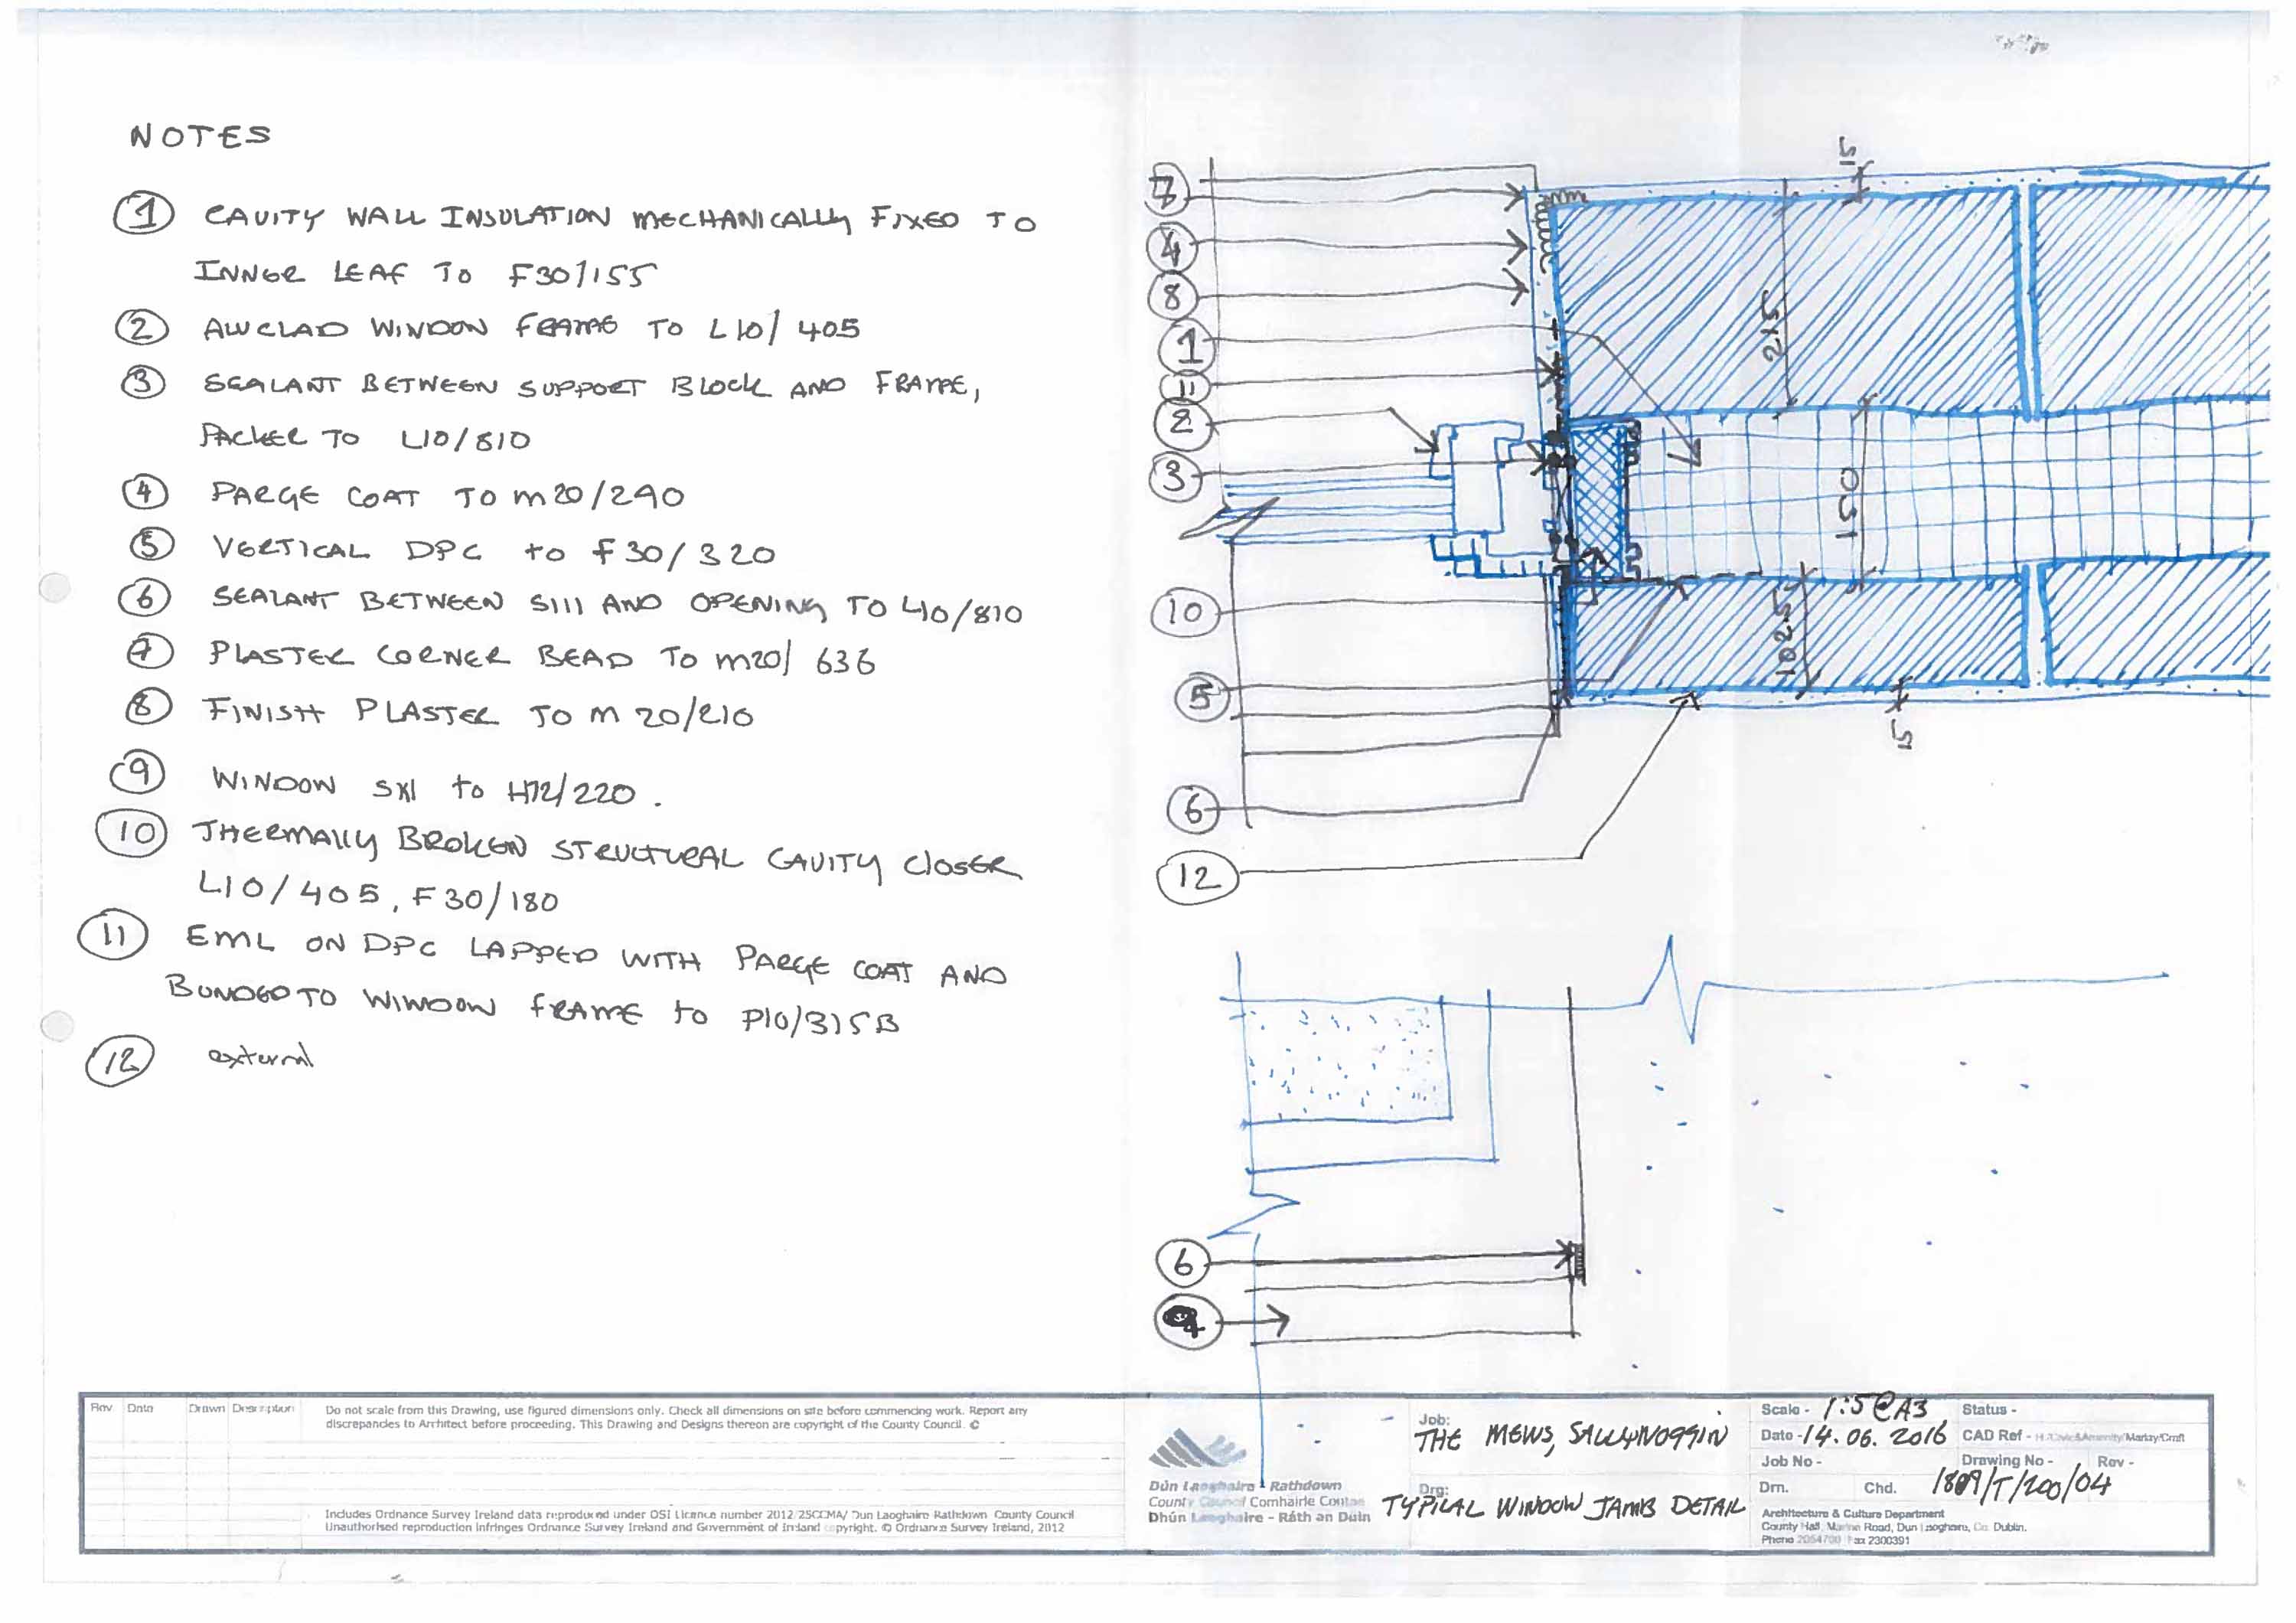 NOTES
1 CAVITY WALL INSULATION MECHANICALLY FIXED TO
INNER LEAF TO F30/155
2 ALUCLAD WINDOW FRAME TO L10/405
3 SEALANT BETWEEN SUPPORT BLOCK AND FRAME,
PACKER TO L10/810
4 PARGE COAT TO M20/290
5 VERTICAL DPC to F30/320
6 SEALANT BETWEEN SIll AND OPENING TO L10/810
7 PLASTER CORNER BEAD TO M20/636
8 FINISH PLASTER TO M20/210
9 WINDOW SIll to H72/220.
10 THERMALLY BROKEN STRUCTURAL CAVITY CLOSER
L10/405, F30/180
11 EML ON DPC LAPPED WITH PARGE COAT AND
BONDED TO WINDOW FRAME to P10/315B
12 external
7
4
8
1
11
2
3
10
5
6
12
15
215
150
102.5
15
6
Rev Date Drawn Description
Do not scale from this Drawing, use figured dimensions only. Check all dimensions on site before commencing work. Report any
discrepancies to Architect before proceeding. This Drawing and Designs thereon are copyright of the County Council. ©
Includes Ordnance Survey Ireland data reproduced under OSI Licence number 2012/25CCMA/ Dun Laoghaire Rathdown County Council
Unauthorised reproduction infringes Ordnance Survey Ireland and Government of Ireland copyright. © Ordnance Survey Ireland, 2012
Dún Laoghaire Rathdown
County Council Comhairle Contae
Dhún Laoghaire - Ráth an Dúin
Job:
THE MEWS, SALLYNOGGIN
Drg:
TYPICAL WINDOW JAMB DETAIL
Scale - 1:5@A3 Status -
Date - 14.06.2016 CAD Ref -
Job No - Drawing No - Rev -
Drn. Chd. 1809/T/200/04
Architecture & Culture Department
County Hall, Marine Road, Dun Laoghaire, Co. Dublin.
Phone 2054700 Fax 2300391